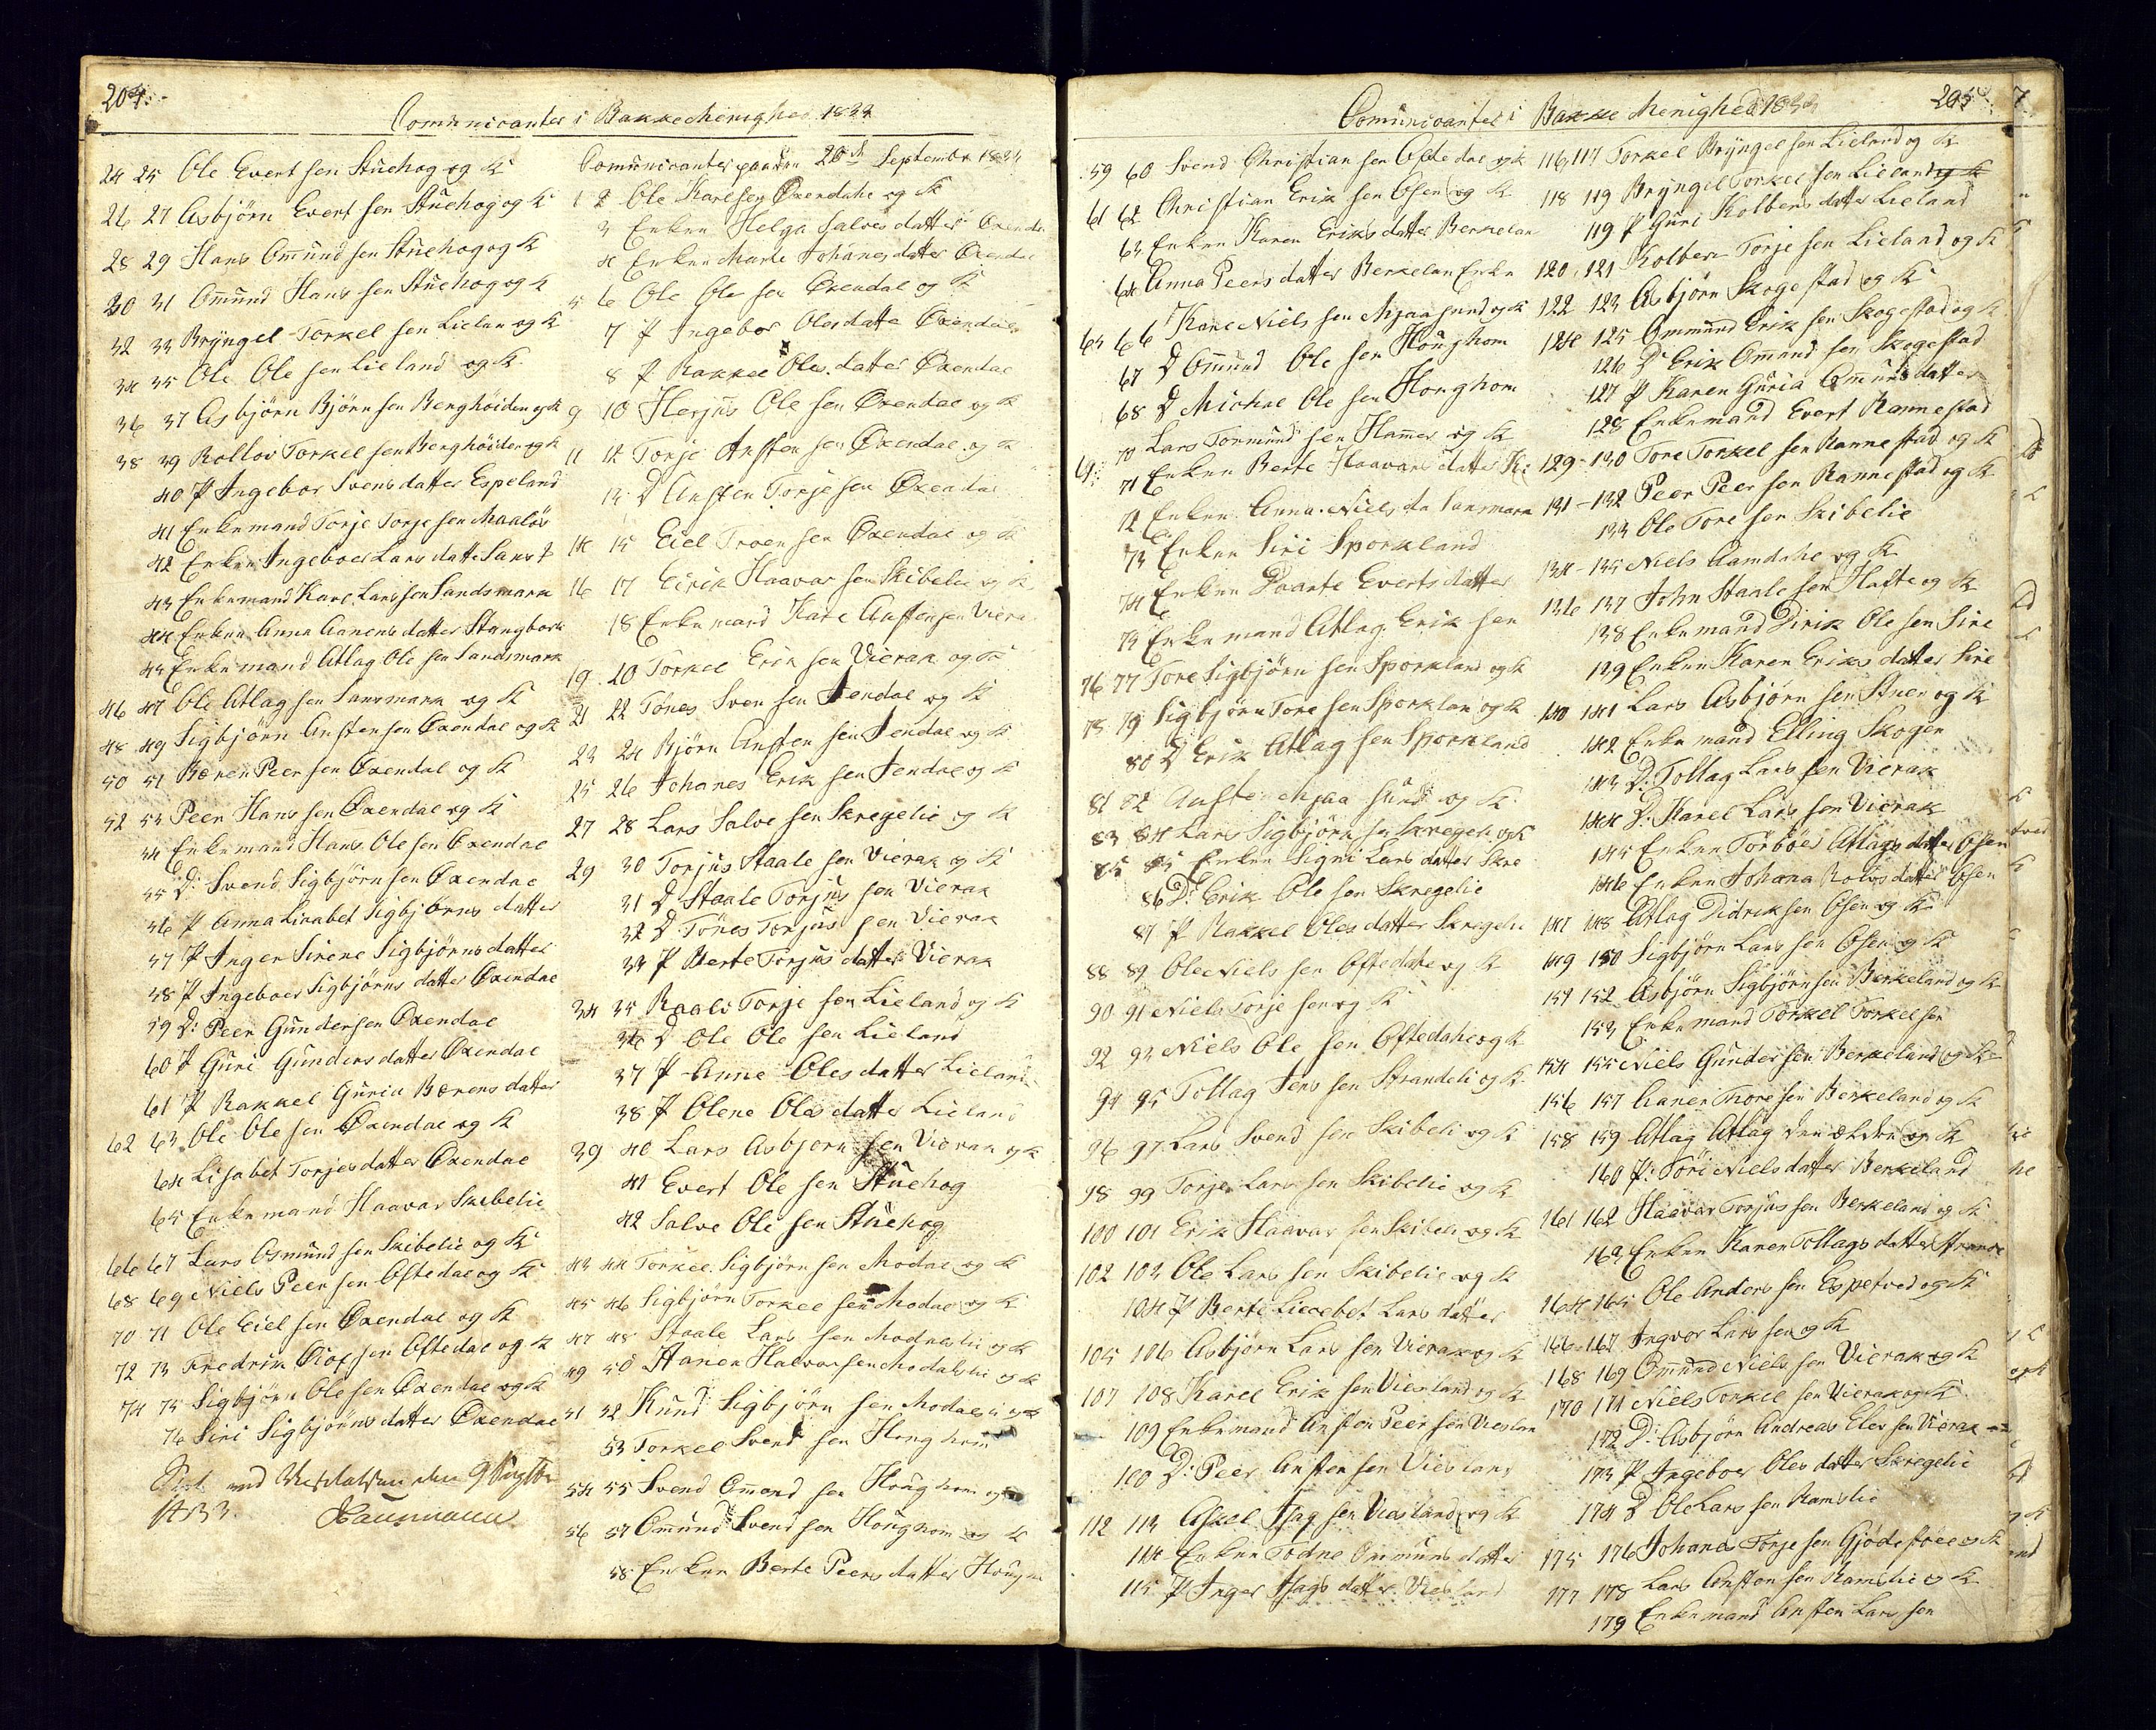 204.
Comunicanter i Bakke Menighed 1833
24 25 Ole Evert sen Stuehog og K
26 27 Asbjörn Evert sen Stuehog og K
28 29 Hans Omund sen Stuehog og K
30 31 Omund Hans sen Stuehog og K
32 33 Bryngel Torkel sen Lielan og K
34 35 Ole Ole sen Lieland og K
36 37 Asbjörn Björn sen Berghöiden og K
38 39 Rollov Torkel sen Berghöiden og K
40 P Ingebor Svens datter Espeland
41 Enkemand Torje Torje sen Maaløs
42 Enken Ingeboer Lars datte Sans
43 Enkemand Karl Lars sen Sandsmark
44 Enken Anna Aanens datter Stangbor
45 Enkemand Atlag Ole sen Sandsmark
46 47 Ole Atlag sen Sansmark og K
48 49 Sigbjörn Ansten sen Oxendal og K
50 51 Bænen Peer sen Oxendal og K
52 53 Peer Hans sen Oxendal og K
54 Enkemand Hans Ole sen Oxendal
55 D: Svend Sigbjörn sen Oxendal
56 P Anna Lisabet Sigbjörns datter
57 P Inger Sirene Sigbjörns datter
58 P Ingeboer Sigbjörns datter Oxendal
59 D: Peer Gunder sen Oxendal
60 P Guri Gunders datter Oxendal
61 P Rakkel Guria Bærens datter
62 63 Ole Ole sen Oxendal og K
64 Lisabet Torjes datter Oxendal
65 Enkemand Haavar Skibelie
66 67 Lars Osmund sen Skibelie og K
68 69 Niels Peer sen Oftedal og K
70 71 Ole Eiel sen Oxendal og K
72 73 Fredrik Olof sen Oftedal og K
74 75 Sigbjörn Ole sen Oxendal og K
76 Siri Sigbjörns datter Oxendal
1833.
Comunicanter paa den 20d September 1833
1 2 Ole Karl sen Oxendahl og K
3 Enken Helga Salves datter Oxendal
4 Enken Marte Johanes datter Oxendal
5 6 Ole Ole sen Oxendal og K
7 P Ingebor Oles datte Oxendal
8 P Rakkel Oles datter Oxendal
9 10 Herjus Ole sen Oxendal og K
11 12 Torje Ansten sen Oxendal og K
13 D Ansten Torje sen Oxendal
14 15 Eiel Troen sen Oxendal og K
16 17 Eirik Haavar sen Skibelie og K
18 Enkemand Karl Ansten sen Viera
19 20 Torkel Erik sen Vierak og K
21 22 Tönes Sven sen Jendal og K
23 24 Björn Ansten sen Jendal og K
25 26 Johanes Erik sen Jendal og K
27 28 Lars Salve sen Skregelie og K
29 30 Torjus Staale sen Vierak og K
31 D Staale Torjus sen Vierak
32 D Tönes Torjus sen Vierak
33 P Berte Torjus datter Vierak
34 35 Raals Torje sen Lieland og K
36 D Ole Ole sen Lieland
37 P Anne Oles datter Lieland
38 P Olene Oles datter Lieland
39 40 Lars Asbjorn sen Vierak og K
41 Evert Ole sen Stuehog
42 Salve Ole sen Stuehog
43 44 Torkel Sigbjörn sen Modal og K
45 46 Sigbjörn Torkel sen Modal og K
47 48 Staale Lars sen Modalslie og K
49 50 Hanen Halvor sen Modalslie og K
51 52 Knud Sigbjörn sen Modals og K
53 Torkel Svend sen Houghom
54 55 Svend Omond sen Houghom og
56 57 Omund Svend sen Houghom og K
58 Enken Berte Peers datter Hougho
205
Comunicanter i Bakke Menighed 1833
59 60 Svend Christian sen Oftedal og K
61 62 Christian Erik sen Osen og K
63 Enken Karen Eriks datter Berkelan
64 Anna Peers datter Berkelan Enke
65 66 Karl Niels sen Mjaasund og K
67 D Omund Ole sen Houghom
68 D Michal Ole sen Houghom
69 70 Lars Tormund sen Hamer og K
71 Enken Berte Haavars datter
72 Enken Anna Niels da Sansmark
73 Enken Siri Sporkland
74 Enken Daarte Everts datter
75 Enkemand Atlag Erik sen
76 77 Tore Sigbjörn sen Sporkland og K
78 79 Sigbjörn Tore sen Sporklan og K
80 D Erik Atlag sen Sporkland
81 82 Ansten Mjaasund og K
83 84 Lars Sigbjörn sen Skregeli og K
85 85 Enken Signi Lars datter Skre
86 D: Erik Ole sen Skregelie
87 P Rakkel Oles datter Skregeli
88 89 Ole Niels sen Oftedahl og K
90 91 Niels Torje sen og K
92 93 Niels Ole sen Oftedahl og K
94 95 Tollag Jens sen Strandeli og K
96 97 Lars Svend sen Skibeli og K
98 99 Torje Lars sen Skibelie og K
100 101 Erik Haavar sen Skibeli og K
102 103 Ole Lars sen Skibelie og K
104 P Berte Licebet Lars datter
105 106 Asbjörn Lars sen Vierak og K
107 108 Karel Erik sen Viesland og K
109 Enkemand Ansten Peer sen Vieslan
110 D: Peer Ansten sen Viesland
112 113 Askel Isag sen Viesland og K
114 Enken Todne Ommuns datter
115 P Inger Isags datter Viesland
116 117 Torkel Bryngel sen Lieland og K
118 119 Bryngel Torkel sen Lieland og K
119 P Guri Kolbens datter Lieland
120 121 Kolben Torje sen Lieland og K
122 123 Asbjörn Skogestad og K
124 125 Ommund Erik sen Skogestad og K
126 D Erik Omund sen Skogestad
127 P Karen Guria Omuns datter
128 Enkemand Evert Rannestad
129-130 Tore Torkel sen Rannestad og K
131-132 Peer Peer sen Rannestad og K
133 Ole Tore sen Skibelie
134-135 Niels Aamdahl og K
136 137 John Staale sen Hafte og K
138 Enkemand Dirik Ole sen Sire
139 Enken Karen Eriks datter Sire
140 141 Lars Asbjørn sen Stuen og K
142 Enkemand Elling Skogen
143 D: Tollag Lars sen Vierak
144 D: Karel Lars sen Vierak
145 Enken Torbör Atlags datter Osen
146 Enken Johana Rolvs datter Osen
147 148 Atlag Didrik sen Osen og K
149 150 Sigbjörn Lars sen Osen og K
151 152 Asbjörn Sigbjörn sen Berkeland og K
153 Enkemand Torkel Torkel sen
154 155 Niels Gunder sen Berkeland og K
156 157 Aanen Thore sen Berkeland og K
158 159 Atlag Atlag den ældre og K
160 P: Tori Niels datter Berkeland
161 162 Haavar Torjus sen Berkeland og K
163 Enken Karen Tollags datter
164 165 Ole Anders sen Espetved og K
166 167 Ingvor Lars sen og K
168 169 Omund Niels sen Vierak og K
170 171 Niels Torkel sen Vierak og K
172 D: Asbjörn Andreas Eles sen Vierak
173 P Ingeboer Oles datter Skregelie
174 D Ole Lars sen Ramslie
175 176 Johanes Torje sen Gjödestoel og K
177 178 Lars Ansten sen Ramslie og K
179 Enkemand Ansten Lars sen